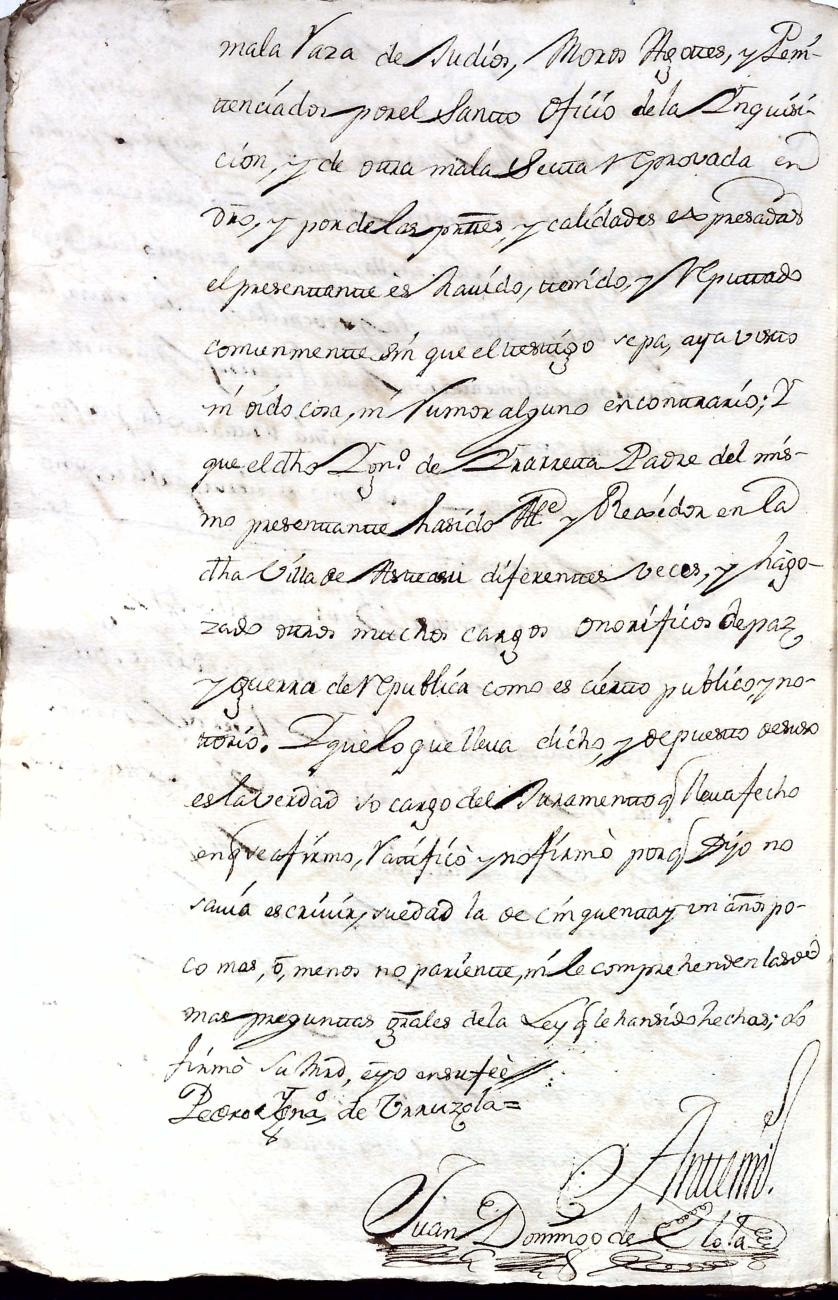 mala Raza de Judios, Moros Agottes, y Peni-
ttenciados por el Santto oficio de la Ynquisi-
cion, y de ottra mala Sectta Reprovada en
dro, y por de las prttes, y calidades expresadas
el presenttantte es havido, ttenido, y Reputtado
comunmentte sin que el ttesttigo sepa, aya visto
ni oido cosa, ni Rumor alguno en conttrario; Y
que el dho Ygn.º de Yrarretta Padre del mis-
mo presenttantte ha sido Alle y Rexidor en la
dha Villa de Astteasu diferenttes veces, y ha go-
zado ottros muchos cargos onorificos de paz
y guerra de Republica como es ciertto publico y no-
ttorio. Y que lo que lleva dicho, y depuestto de suso
es la verdad so cargo del Juramentto q lleva fecho
en q se afirmo, Rattificò y no firmò porq Dijo no
savia escrivir, su edad la de cinquentta y un años po-
co mas, ò, menos no parientte, ni le comprehenden las de
mas preguntas grales de la Ley q le han sido hechas;
firmò Su Mrd, e yo en su fèe
Pedro Ygnaº de Urruzola=
Anttemi.
Juan Domingo de